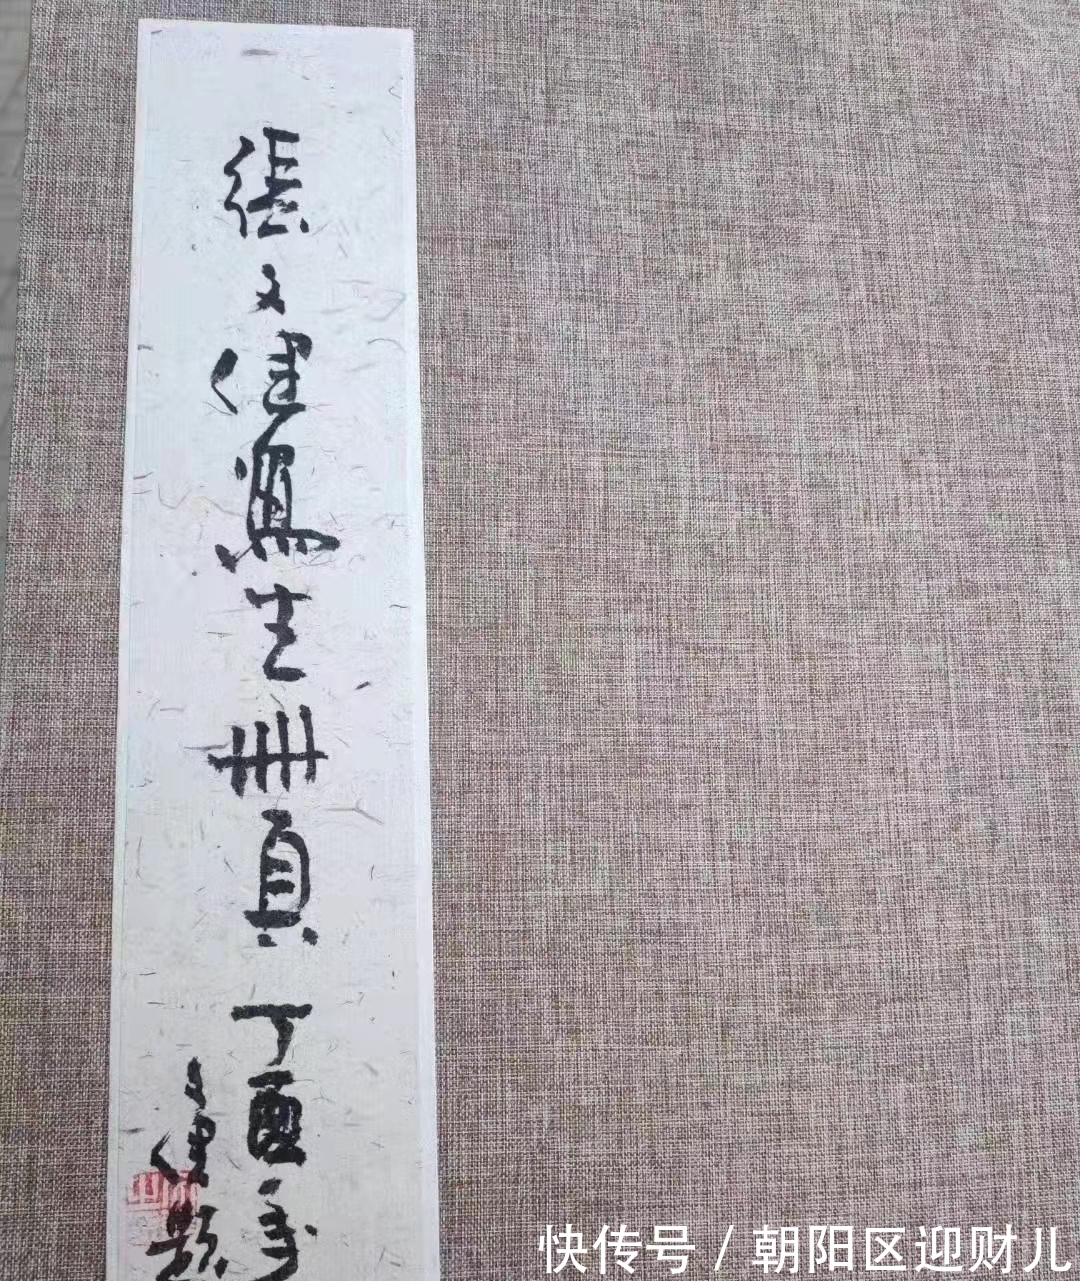 張文健寫生冊頁 丁酉年
文健题
快传号 / 朝阳区迎财儿